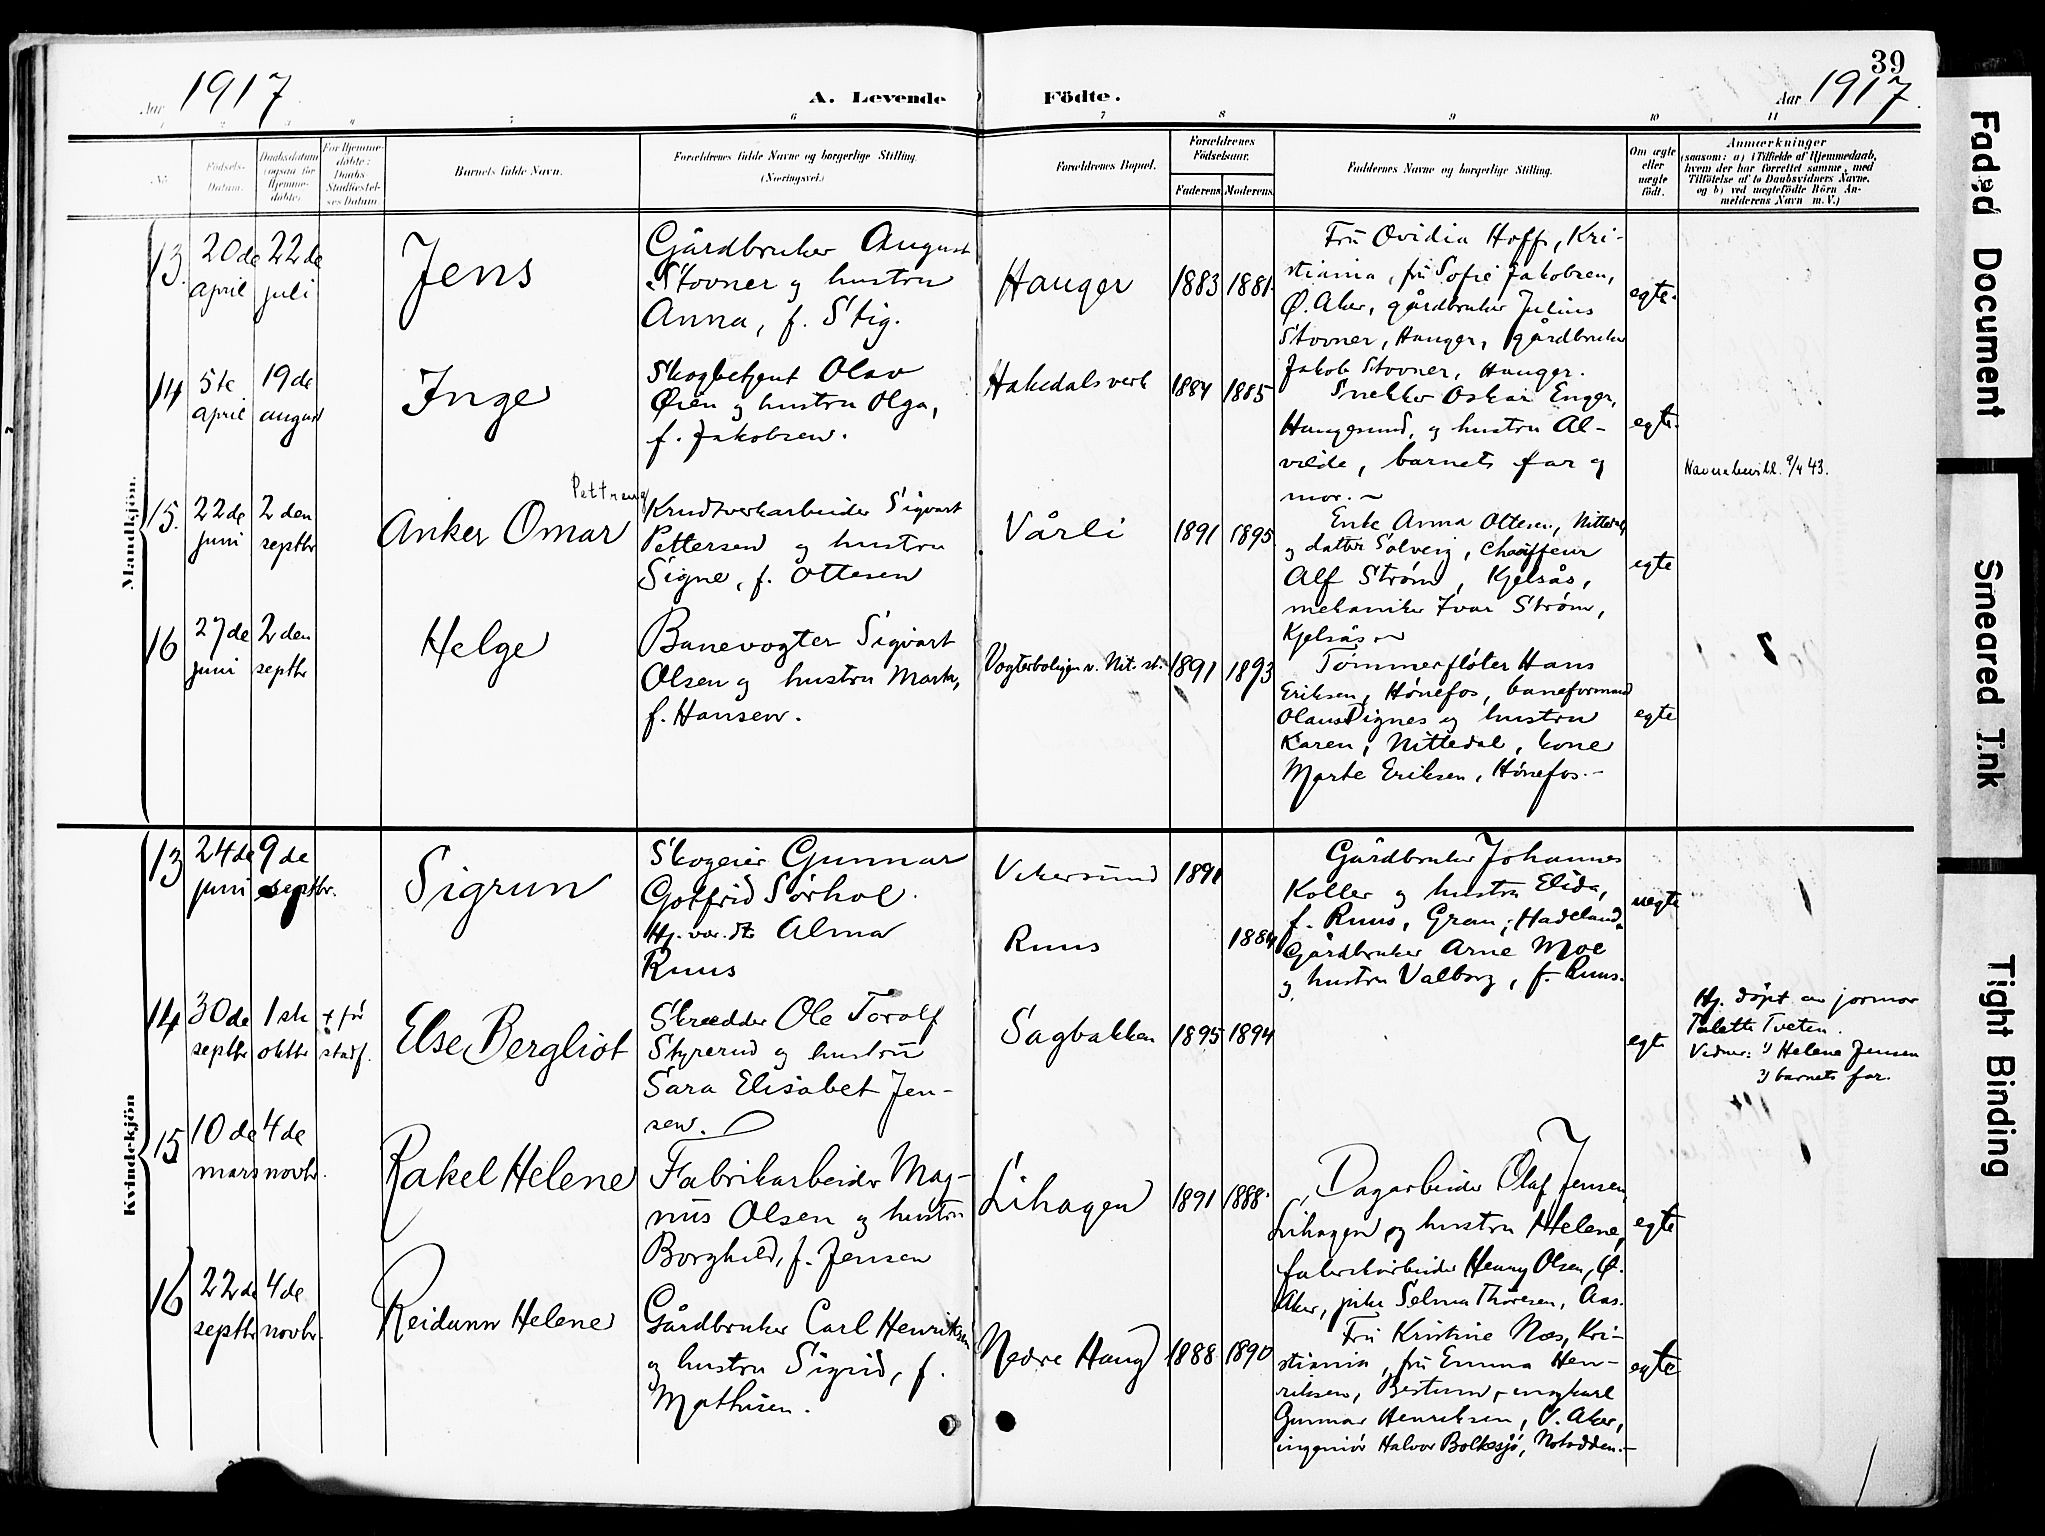 39
Aar 1917
A. Levende Födte.
Aar 1917.
1 2 3 4 5 6 7 8 9 10 11
No.
Fødsels-
Datum.
Daabsdatum
(ogsaa for
Hjemme-
døbte).
For Hjemme-
døbte:
Daabs
Stadfæstel-
ses Datum
Barnets fulde Navn.
Forældrenes fulde Navne og borgerlige Stilling.
(Næringsvei.)
Forældrenes Bopæl.
Forældrenes
Fødselsaar.
Faderens Moderens
Faddernes Navne og borgerlige Stilling.
Om ægte
eller
uægte
født.
Anmærkninger
(saasom: a) i Tilfælde af Hjemmedaab,
hvem der har forrettet samme, med
Tilføielse af to Daabsvidners Navne,
og b) ved uægtefødte Børn An-
melderens Navn m. V.)
Mandkjön.
13.
20de
april
22de
juli
Jens
Gårdbruker August
Stovner og hustru
Anna, f. Stig.
Hauger
1883
1881
Fru Ovidia Hoff, Kri-
stiania, fru Sofie Jakobsen,
Ø. Aker, gårdbruker Julius
Stovner, Hauger, gårdbruker
Jakob Stovner, Hauger.
egte.
14
5te
april
19de
august
Inge
Skogbetjent Olav
Øien og hustru Olga,
f. Jakobsen.
Hakedalsverk
1884
1885
Snekker Oskar Enger,
Haugesund, og hustru Al-
vilde, barnets far og
mor.
egte.
15.
22de
juni
2den
septbr
Pettreng
Anker Omar
Krudtverkarbeider Sigvart
Pettersen og hustru
Signe, f. Ottesen
Vårli
1891
1895
Enke Anna Ottesen, Nittedal,
og datter Solveig, chauffeur
Alf Strøm, Kjelsås,
mekaniker Ivar Strøm,
Kjelsås
egte
Navnebevill. 9/4 43.
16
27de
juni
2den
septbr
Helge
Banevogter Sigvart
Olsen og hustru Marta,
f. Hansen.
Vogterboligen v. Nit. st.
1891
1893
Tømmerfløter Hans
Eriksen, Hønefos, baneformand
Olaus Dignes og hustru
Karen, Nittedal, kone
Marte Eriksen, Hønefos.
egte
Kvindekjön
13
24de
juni
9de
septbr.
Sigrun
Skogeier Gunnar
Gotfrid Sørhol.
Hj. vær. dtr Alma
Ruus
Vikersund
Ruus
1891
1884
Gårdbruker Johannes
Koller og hustru Elida,
f. Ruus, Gran, Hadeland.
Gårdbruker Arne Moe
og hustru Valborg, f. Ruus.
uegte
14
30de
septbr
1ste
oktbr
+ før
stadf.
Else Bergliot
Skrædder Ole Toralf
Styrerud og hustru
Sara Elisabet Jen-
sen.
Sagbakken
1895
1894
egte
Hj. døpt av jormor
Talette Tveten.
Vidner: 1) Helene Jensen
2) barnets far.
15
10de
mars
4de
novbr.
Rakel Helene
Fabrikarbeider Mag-
nus Olsen og hustru
Borghild, f. Jensen
Lihagen
1891
1888
Dagarbeider Olaf Jensen,
Lihagen og hustru Helene,
fabrikarbeider Henny Olsen, Ø.
Aker, pike Selma Thoresen, Aas.
egte
16
22de
septbr
4de
novbr.
Reidunn Helene
Gårdbruker Carl Henriksen
og hustru Sigrid, f.
Mathisen.
Nedre Haug
1888
1890
Fru Kristine Næs, Kri-
stiania, fru Emma Hen-
riksen, Bestum, ungkarl
Gunnar Henriksen, V. Aker,
ingeniør Halvor Bolkesjø, Notodden.
egte
Faded Document
Smeared Ink
Tight Binding